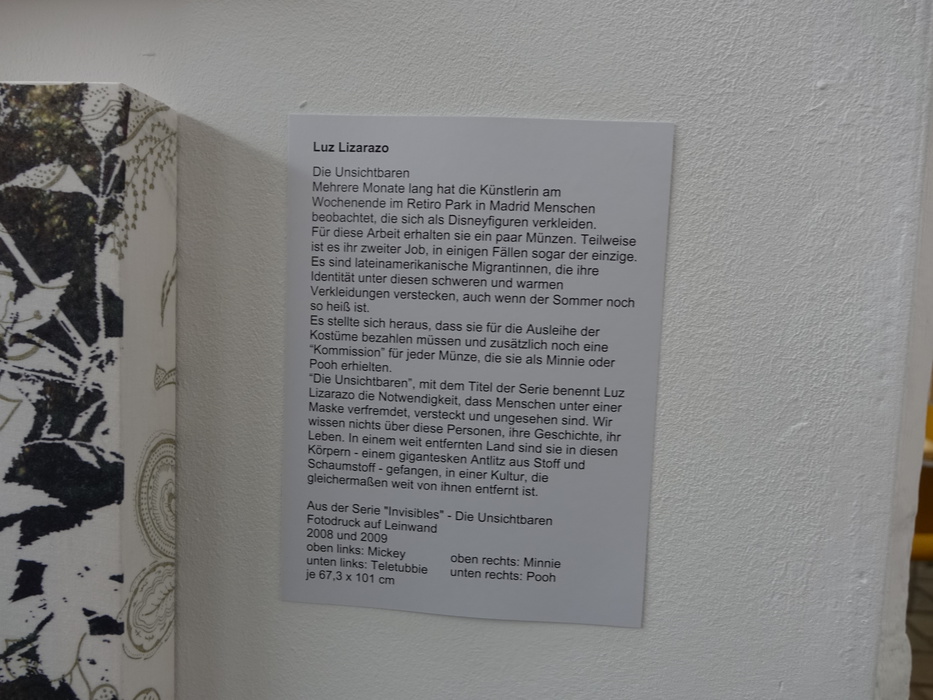 Luz Lizarazo
Die Unsichtbaren
Mehrere Monate lang hat die Künstlerin am
Wochenende im Retiro Park in Madrid Menschen
beobachtet, die sich als Disneyfiguren verkleiden.
Für diese Arbeit erhalten sie ein paar Münzen. Teilweise
ist es ihr zweiter Job, in einigen Fällen sogar der einzige.
Es sind lateinamerikanische Migrantinnen, die ihre
Identität unter diesen schweren und warmen
Verkleidungen verstecken, auch wenn der Sommer noch
so heiß ist.
Es stellte sich heraus, dass sie für die Ausleihe der
Kostüme bezahlen müssen und zusätzlich noch eine
“Kommission” für jeder Münze, die sie als Minnie oder
Pooh erhielten.
“Die Unsichtbaren”, mit dem Titel der Serie benennt Luz
Lizarazo die Notwendigkeit, dass Menschen unter einer
Maske verfremdet, versteckt und ungesehen sind. Wir
wissen nichts über diese Personen, ihre Geschichte, ihr
Leben. In einem weit entfernten Land sind sie in diesen
Körpern - einem gigantesken Antlitz aus Stoff und
Schaumstoff - gefangen, in einer Kultur, die
gleichermaßen weit von ihnen entfernt ist.
Aus der Serie "Invisibles" - Die Unsichtbaren
Fotodruck auf Leinwand
2008 und 2009
oben links: Mickey oben rechts: Minnie
unten links: Teletubbie unten rechts: Pooh
je 67,3 x 101 cm